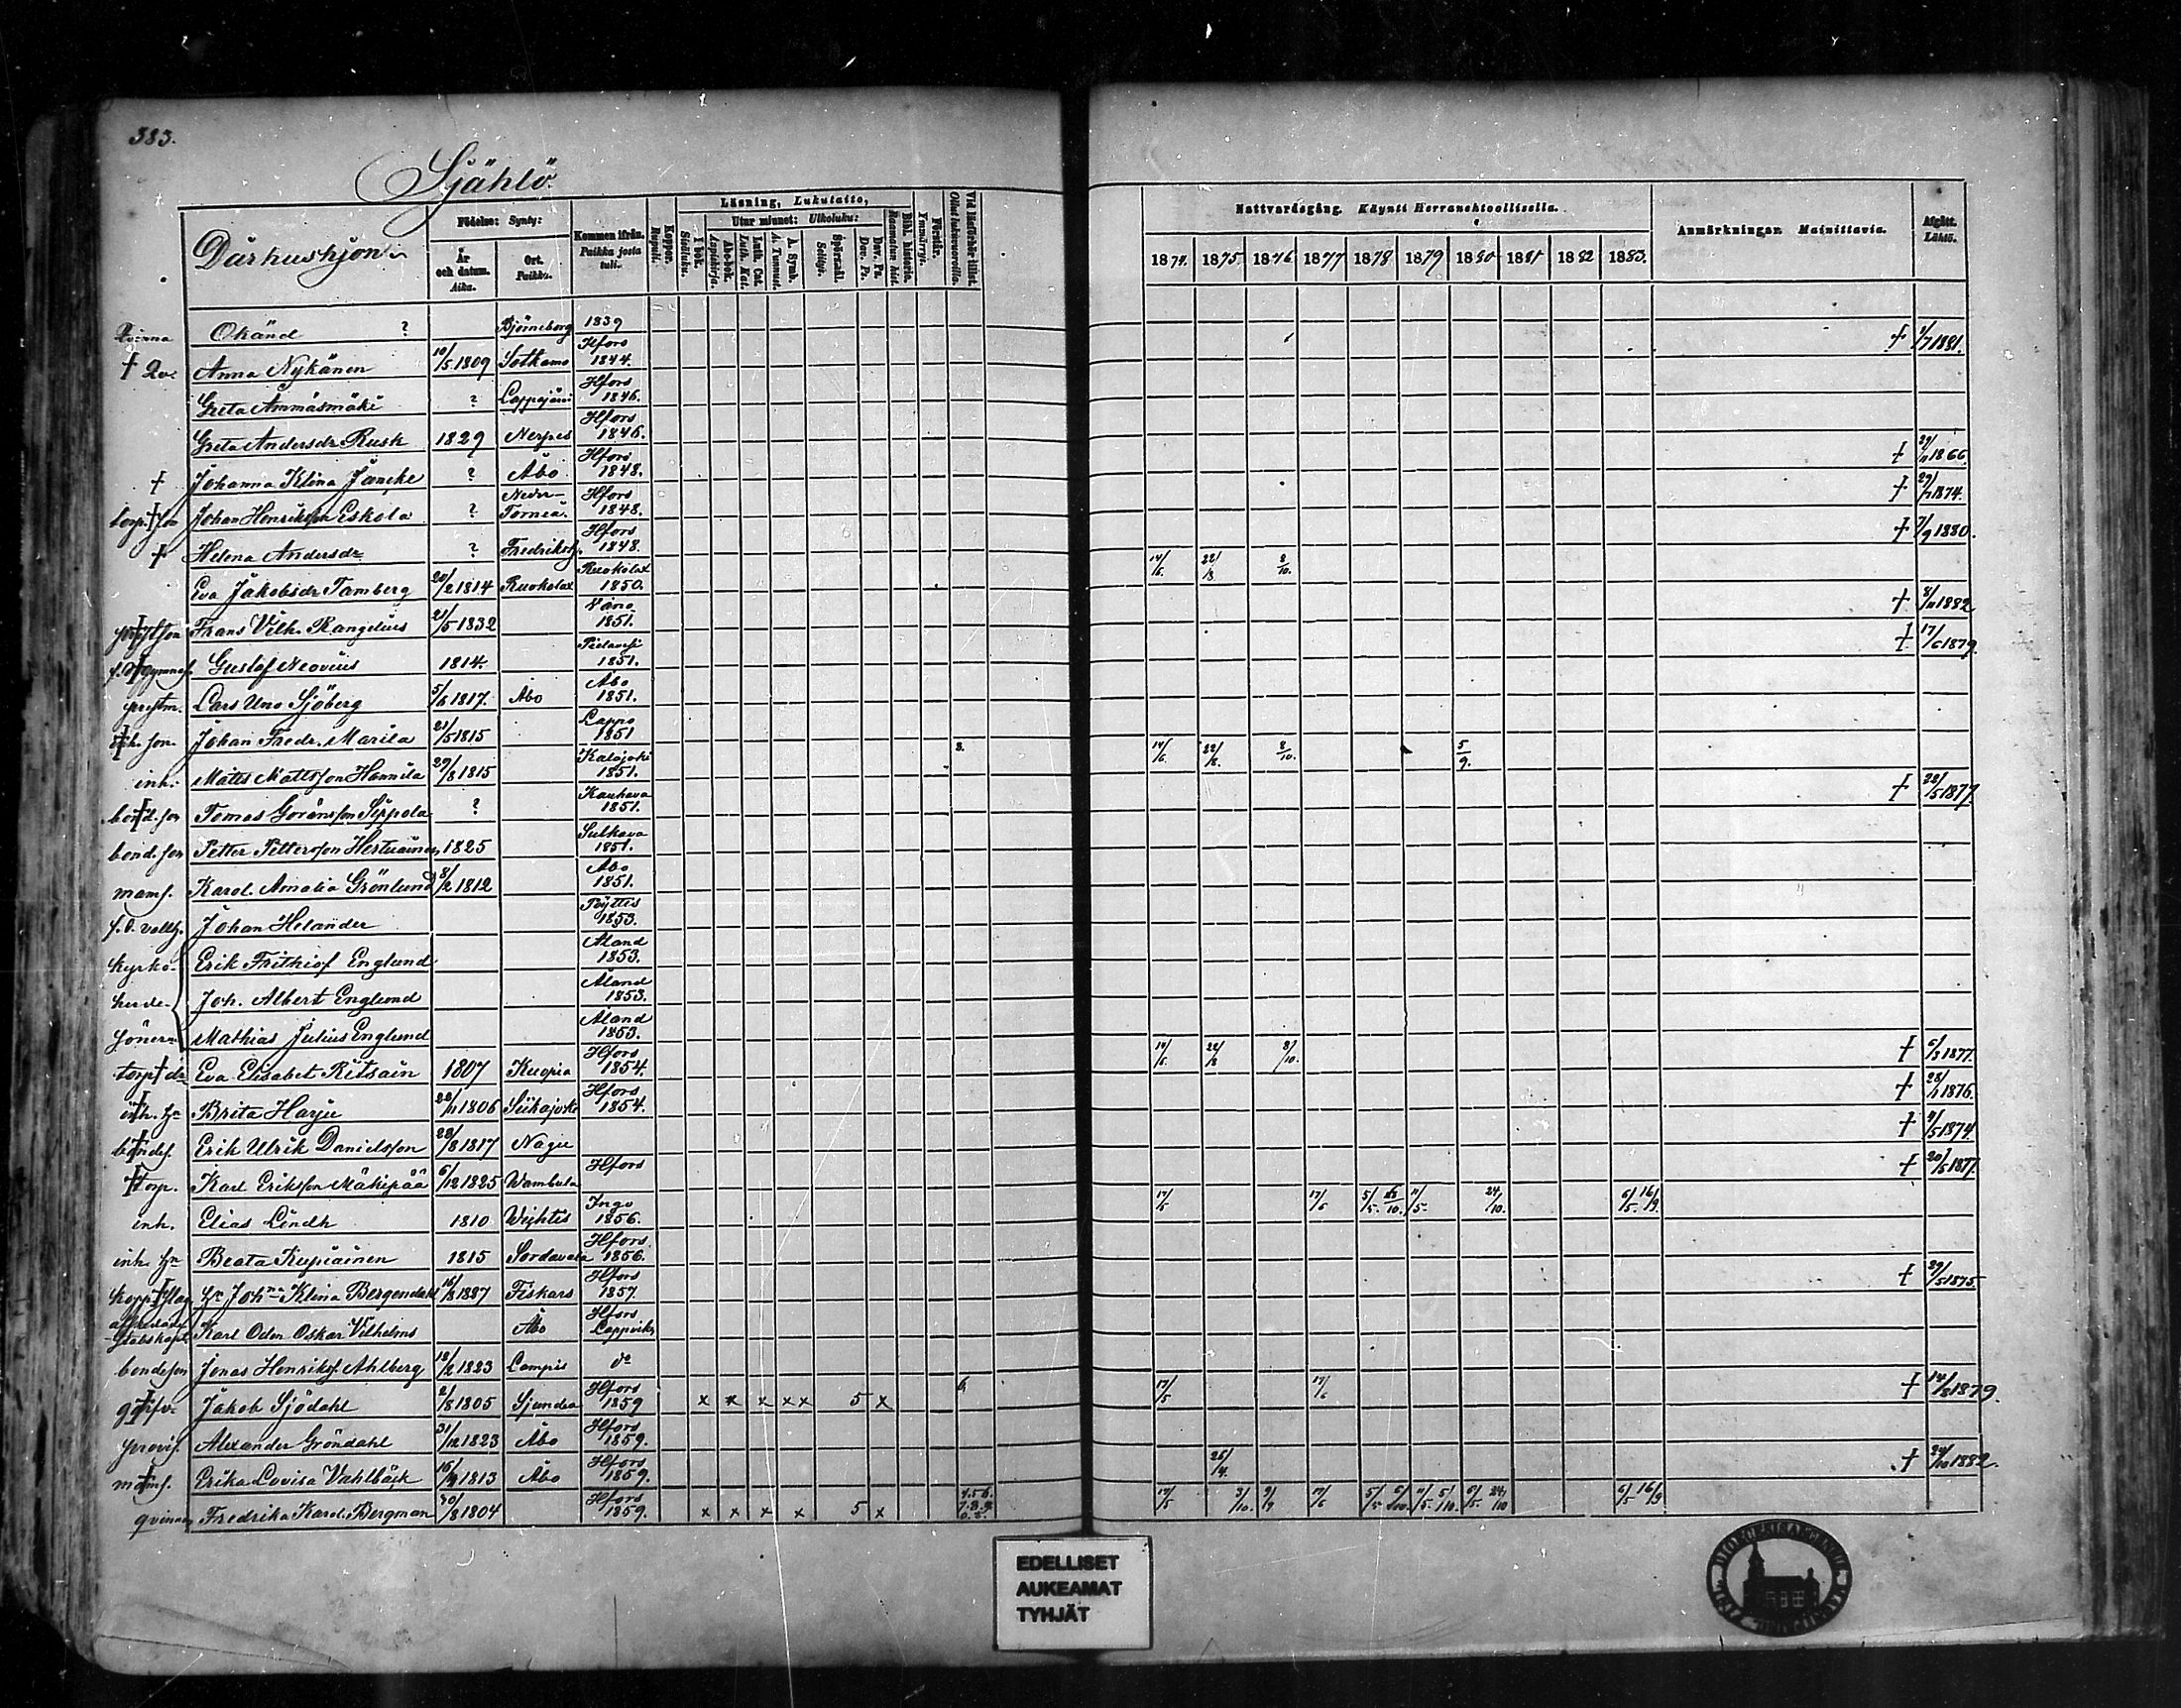 383.
Själlö.
Dårhushjon
Födelse: Synty:
År och datum. Aika.
Ort. Paikka.
Kommen ifrån. Paikka josta tuli.
Koppor. Rupuli.
Läsning, Lukutaito,
I bok. Sisäluku.
Utur minnet: Ulkoluku:
Abc-bok. Aapiskirja.
Luth. Cat. Luth. Kat.
A. Symb. A. Tunnust.
Spörsmål. Selitys.
Dav. Ps. Dav. Ps.
Bibl. historia. Raamatun hist.
Förstår. Ymmärrys.
Vid läsförhör tillst. Ollut lukuvuoroilla.
Nattvardsgång. Käynti Herranehtoollisella.
1874. 1875 1876 1877 1878 1879 1880 1881 1882 1883.
Anmärkningar. Mainittavia.
Afgått. Lähtö.
Qvinna Okänd ? Björneborg 1839
† Qv. Anna Nykänen 10/5 1809 Sotkamo Hfors 1844. † 1/7 1881.
Greta Ammäsmäki ? Lappajärvi Hfors 1846.
Greta Andersdr Rusk 1829 Nerpes Hfors 1846.
† Johanna Klina Jancke ? Åbo Hfors 1848. † 29/11 1866
torp. † son Johan Henriksson Eskola ? Neder-Torneå Hfors 1848. † 29/7 1874.
† Helena Andersdr ? Fredriksh. Hfors 1848. † 7/9 1880.
Eva Jakobsdr Tamberg 20/2 1814 Ruokolax Ruokolax 1850. 14/6. 22/8 8/10.
Frans Vilh. Rangelius 21/5 1832 Vånå 1851. † 8/11 1882
Gustaf Neovius 1814. Pielavesi 1851. † 17/6 1879
prestm. Lars Uno Sjöberg 5/6 1817. Åbo Åbo 1851.
Johan Fredr. Marila 21/5 1815 Lappo 1851
inh. Matts Mattsson Hannila 29/8 1815 Kalajoki 1851. 8. 14/6. 22/8. 8/10. 5/9.
bond. son Tomas Göransson Seppola ? Kauhava 1851. † 22/5 1877
bond. son Petter Pettersson Hertuainen 1825 Sulkava 1851.
mams. Karol. Amalia Grönlund 8/2 1812 Åbo 1851.
Johan Helander Pöyttis 1853.
kyrko- Erik Frithiof Englund Åland 1853.
herde- Joh. Albert Englund Åland 1853.
söner Mathias Julius Englund Åland 1853.
torp † dr Eva Elisabet Ritsain 1807 Kuopio Hfors 1854. 14/6. 22/8 8/10. † 6/3 1877.
inh. hu Brita Harju 22/11 1806 Siikajoki Hfors 1854. † 28/1 1876.
bondes. Erik Ulrik Danielsson 28/8 1817 Nagu † 4/5 1874
† torp. Karl Eriksson Mäkipää 6/12 1825 Wambula Hfors † 20/5 1877.
inh. Elias Lindh 1810 Wichtis Ingo 1856. 17/5 17/6 5/5. 6/10. 11/5. 24/10. 6/5. 16/9.
inh. hu Beata Kupiainen 1815 Sordavala Hfors 1856.
Hu Johna Klina Bergendahl 16/8 1827 Fiskars Hfors 1857. † 29/5 1875.
Karl Oden Oskar Vilhelms Åbo Hfors Lappvik
bondeson Jonas Henriks. Ahlberg 18/2 1823 Lampis do
Jakob Sjödahl 2/8 1805 Sjundeå Hfors 1859 x x x x x 5 x 6, 17/5 17/6 † 14/8 1879.
provis. Alexander Gröndahl 31/12 1823 Åbo Hfors 1859.
mams. Erika Lovisa Vahlbäck 15/9 1813 Åbo Hfors 1859. 26/4. † 24/10 1882.
qvinna Fredrika Karol. Bergman 30/8 1804 Hfors 1859. x x x x 5 x 17/5 3/10. 9/9 17/6 5/5 6/10. 11/5. 5/10. 6/5. 24/10 6/5 16/9
EDELLISET
AUKEAMAT
TYHJÄT